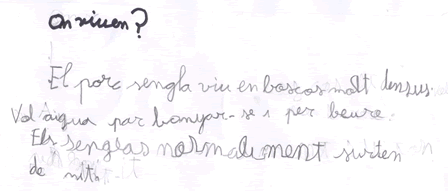 On viuen?
El porc sengla viu en boscos molt densus.
Vol aigua par banyar-se i per beure.
Els senglas normalment surten
de nit